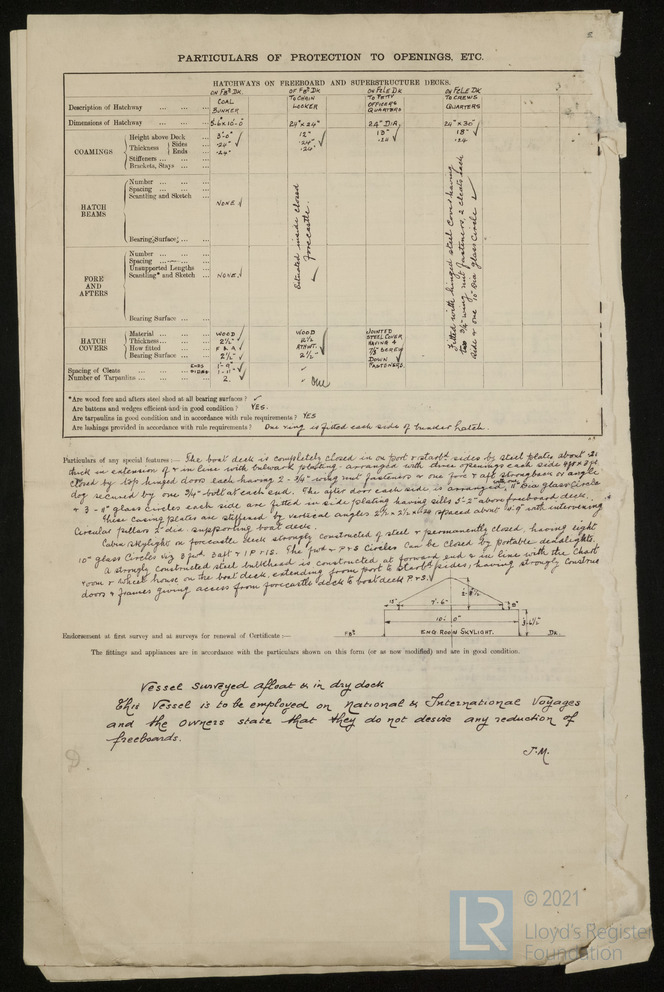 PARTICULARS OF PROTECTION TO OPENINGS, ETC.
HATCHWAYS ON FREEBOARD AND SUPERSTRUCTURE DECKS.
ON FBD DK. OF FBD DK ON FCLE DK ON FCLE DK
Description of Hatchway COAL BUNKER TO CHAIN LOCKER TO PETTY OFFICERS QUARTERS TO CREWS QUARTERS
Dimensions of Hatchway 24" x 24" 24" DIA. 24" x 30"
COAMINGS
Height above Deck 3'-0" 12" 18" 18"
Thickness Sides .24" .24" .24 .24
Ends .24" .24"
Stiffeners
Brackets, Stays
HATCH BEAMS
Number
Spacing
Scantling and Sketch NONE
Bearing Surface
FORE AND AFTERS
Number
Spacing
Unsupported Lengths
Scantling* and Sketch NONE
Bearing Surface
Situated inside closed Forecastle.
Fitted with hinged steel cover having
two 3/4" wing nut fasteners, 2 cleats each
side & one 10" dia glass circle
HATCH COVERS
Material WOOD WOOD
Thickness 2½" 2½
How fitted F & A ATHWT.
Bearing Surface 2½" 2½"
STEEL COVER HAVING 4 7/8 SCREW DOWN FASTENERS.
Spacing of Cleats ENDS 1'-9"
SIDES 1'-11"
Number of Tarpaulins 2. One
*Are wood fore and afters steel shod at all bearing surfaces?
Are battens and wedges efficient and in good condition? YES.
Are tarpaulins in good condition and in accordance with rule requirements? YES
Are lashings provided in accordance with rule requirements? One ring is fitted each side of bunker hatch.
Particulars of any special features:— The boat deck is completely closed in on port & starbd. sides by steel plates about
thick in extension of & in line with bulwark plating arranged with three openings each side
closed by top hinged doors each having 2 - 3/4" wing nut fasteners & one fore & aft strongback or angle
dog secured by one 3/4" bolt at each end. The after door each side is arranged with one 11" dia glass circle
& 3 - 8" glass circles each side are fitted in side plating having sills 5'-2" above freeboard deck.
These casing plates are stiffened by vertical angles spaced about with intervening
Circular pillars 2" dia supporting boat deck.
Cabin Skylight on forecastle deck strongly constructed of steel & permanently closed, having eight
10" glass Circles viz 3 fwd. 3 aft & 1 P & 1 S. The fwd & P & S Circles can be closed by portable deadlights.
A strongly constructed steel bulkhead is constructed at forward end & in line with the Chart
room & Wheel house on the boat deck, extending from port to starbd sides, having strongly constructed
doors & frames giving access from forecastle deck to boat deck P & S.
7'-6"
10'- 0"
ENG ROOM SKYLIGHT.
FBD DK.
Endorsement at first survey and at surveys for renewal of Certificate:—
The fittings and appliances are in accordance with the particulars shown on this form (or as now modified) and are in good condition.
Vessel surveyed afloat & in dry dock
This Vessel is to be employed on National & International Voyages
and the owners state that they do not desire any reduction of
freeboards.
J.M.
LR
© 2021
Lloyd's Register
Foundation